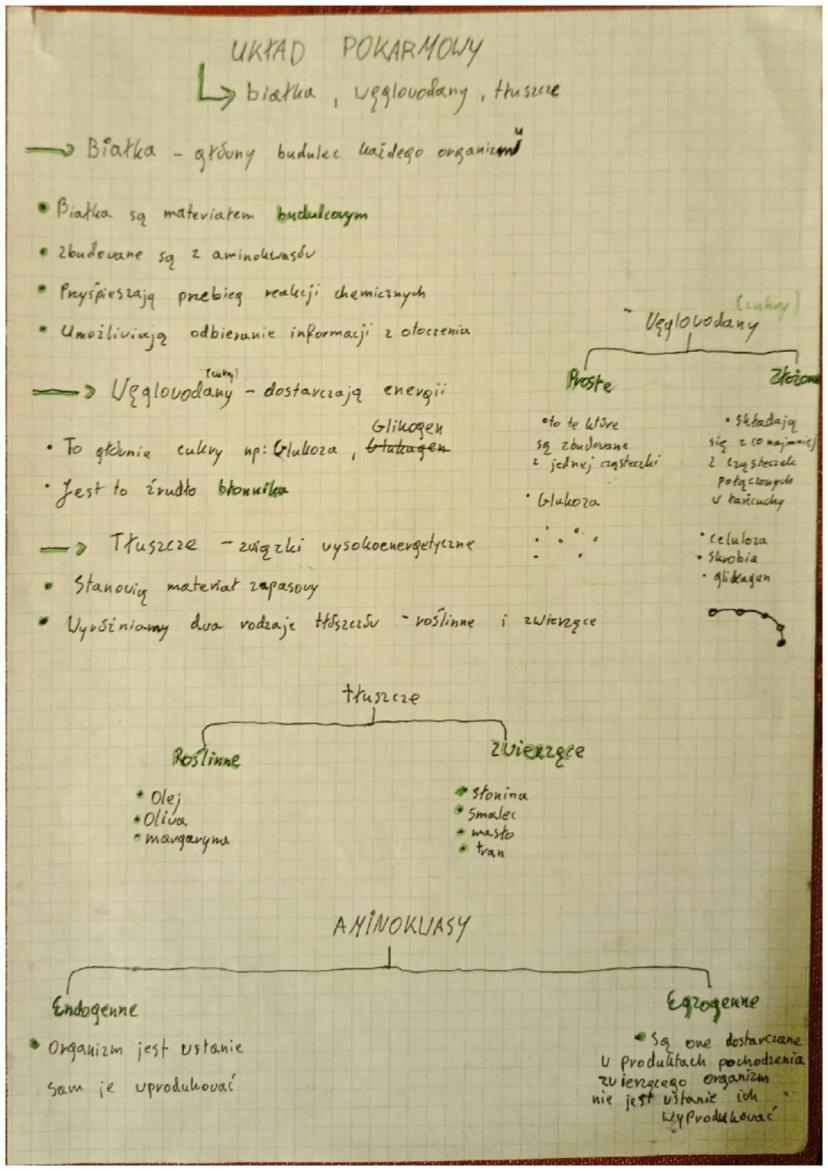 UKŁAD POKARMOWY
białka, węglowodany, tłuszcze
Białka - główny budulec każdego organizmu
Białka są materiałem budulcowym
Zbudowane są z aminokwasów
Pryśpieszają przebieg reakcji chemicznych
Umożliwiają odbieranie informacji z otoczenia
(cukry)
Węglowodany - dostarczają energii
Glikogen
To głównie cukry np: Glukoza, Glukagen
Jest to źrudło błonnika
(cukry)
Węglowodany
Proste
Złożone
to te które
są zbudowane
z jednej cząsteczki
Glukoza
Składają
się z co najmniej
2 cząsteczek
połączonych
w łańcuchy
celuloza
Skrobia
glikagen
Tłuszcze - związki wysokoenergetyczne
Stanowią materiał zapasowy
Wyróżniamy dwa rodzaje tłószczów - roślinne i zwierzęce
tłuszcze
Roślinne
Zwierzęce
Olej
Oliwa
margaryna
słonina
Smalec
masło
tran
AMINOKWASY
Endogenne
Egzogenne
Organizm jest wstanie
sam je wprodukować
Są one dostarczane
w produktach pochodzenia
zwierzęcego organizm
nie jest wstanie ich
wyProdukować